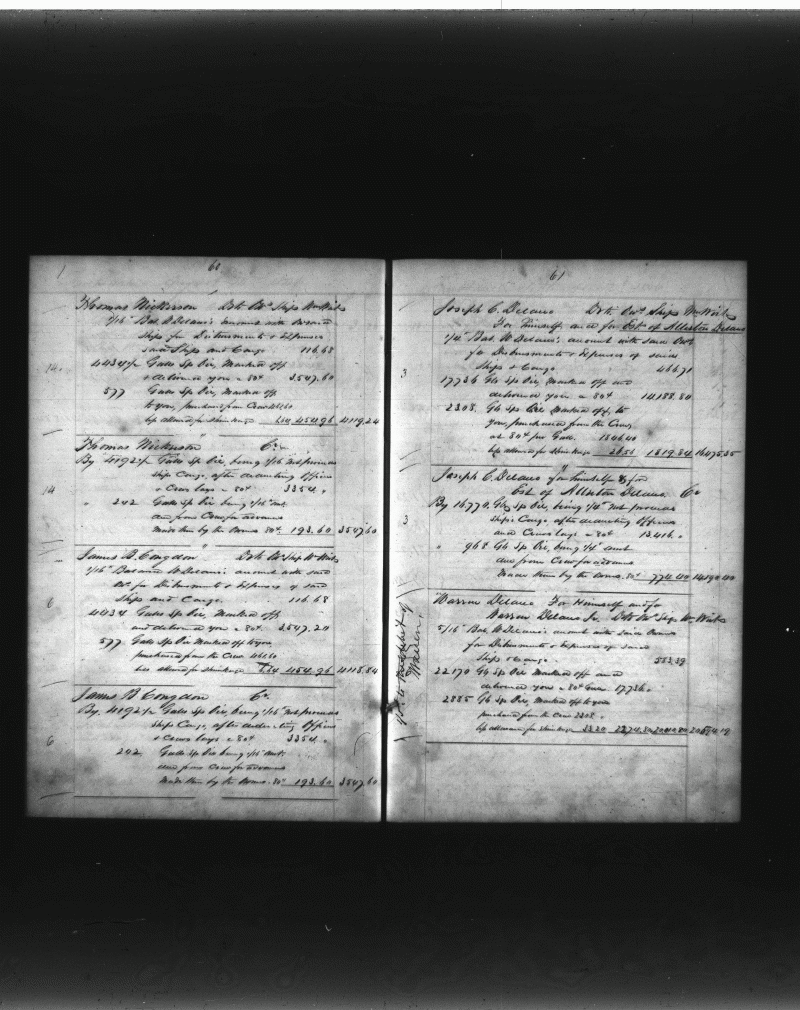 60
Thomas Nickerson Dr to Ow.s Ship Wm Wirt
1/16 Bal. W Delano's amount with said
Ship for Disbursments & Expenses
said Ship and Cargo 116.68
14 4434 1/2 Galls Sp Oil, Marked off
& delivered you a 80¢ 3547.60
577 Galls Sp Oil, Marked off
to you, purchased from Crew 461.60
less allowed for Shrinkage 6.64 454.96 4119.24
Thomas Nickerson Cr
By 4192 1/2 Galls Sp Oil, being 1/16 Net proceeds
Ships Cargo, after deducting Officers
14 & Crews lays a 80¢ 3354.
" 242 Galls Sp Oil being 1/16 net
due from Crew for advances
made them by the Owners 80¢ 193.60 3547.60
James B. Congdon Dr to Ow Ship Wm Wirt
1/16 Balance W Delano's amount with said
Ow. for Disbursments & Expenses of said
6 Ship and Cargo 116.68
4434 Galls Sp Oil, Marked off
and delivered you a 80¢ 3547.20
577 Galls Sp Oil Marked off to you
purchased from the Crew 461.60
less allowed for Shrinkage 6.64 454.96 4118.84
James B Congdon Cr
By 4192 1/2 Galls Sp Oil, being 1/16 Net proceeds
Ships Cargo, after deducting Officers
& Crews lays a 80¢ 3354.
6 242 Galls Sp Oil being 1/16 net
due from Crew for advances
made them by the Owners 80¢ 193.60 3547.60
61
Joseph C. Delano Dr to Ow.s Ship Wm Wirt
For himself and for Est of Allerton Delano
1/4 Bal. W Delano's amount with said Ow.
for Disbursments & Expenses of said
3 Ship & Cargo 466.71
17736 Gls Sp Oil, Marked off and
delivered you a 80¢ 14188.80
2308 Gls Sp Oil Marked off, to
you, purchased from the Crew
at 80¢ per Gall. 1846.40
less allowed for Shrinkage 26.56 1819.84 16475.35
Joseph C. Delano for himself & for
Est of Allerton Delano Cr
By 16770 Gls Sp Oil, being 1/4 Net proceeds
3 Ship's Cargo after deducting Officers
and Crews lays a 80¢ 13416.
" 968 Gls Sp Oil, being 1/4 net
due from Crew for advances
made them by the Owners 80¢ 774.40 14190.40
Warren Delano For Himself and for
Warren Delano Jr. Dr to Ow. Ship Wm Wirt
5/16 Bal. W Delano's amount with said Owners
for Disbursments & Expenses of said
Ship & Cargo 583.39
22170 Gls Sp Oil Marked off and
delivered you a 80¢ 17736.
2885 Gls Sp Oil, Marked off to you
purchased from the Crew 2308.
less allowed for Shrinkage 33.20 2274.80